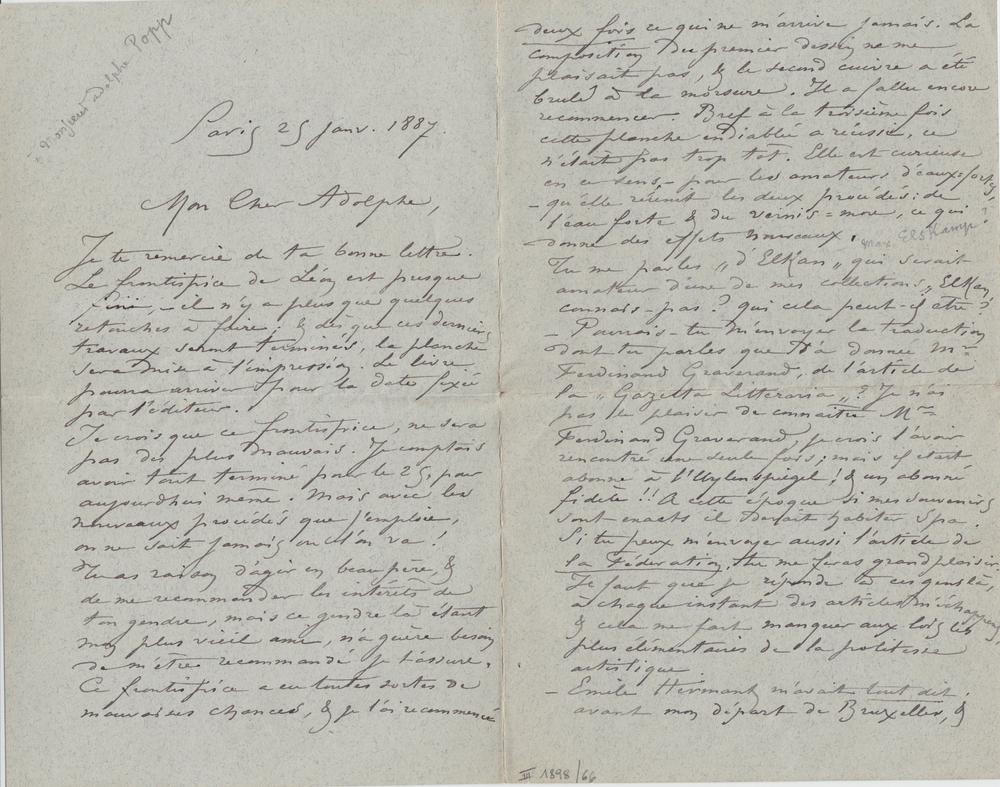 à Monsieur Adolphe Popp
Paris 25 Janv. 1887.
Mon Cher Adolphe,
Je te remercie de ta bonne lettre.
Le frontispice de Léon est presque
fini, – il n'y a plus que quelques
retouches à faire; & dès que ces derniers
travaux seront terminés, la planche
sera mise à l'impression. Le livre
pourra arriver pour la date fixée
par l'éditeur.
Je crois que ce frontispice, ne sera
pas des plus mauvais. Je comptais
avoir tout terminé pour le 25, pour
aujourd'hui même. Mais avec les
nouveaux procédés que j'emploie,
on ne sait jamais où l'on va!
Tu as raison d'agir en beau père, &
de me recommander les intérêts de
ton gendre, mais ce gendre là étant
mon plus vieil ami, n'a guère besoin
de m'être recommandé je t'assure.
Ce frontispice a eu toutes sortes de
mauvaises chances, & je l'ai recommencé
deux fois ce qui ne m'arrive jamais. La
composition du premier dessin ne me
plaisait pas, & le second cuivre a été
brulé à la morsure. Il a fallu encore
recommencer. Bref à la troisième fois
cette planche endiablé a réussi, ce
n'était pas trop tôt. Elle est curieuse
en ce sens, – pour les amateurs d'eaux=fortes,
– qu'elle réunit les deux procédés: de
l'eau forte & du vernis=mou, ce qui
donne des effets nouveaux.
Max Elskamp?
Tu me parles „d'Elkan„ qui serait
amateur d'une de mes collections „Elkan„
connais-pas? qui cela peut-il être?
– Pourrais-tu m'envoyer la traduction
dont tu parles que t'a donnée Mr
Ferdinand Graverand, de l'article de
la „Gazetta Litteraria„? Je n'ai
pas le plaisir de connaître Mr
Ferdinand Graverand, je crois l'avoir
rencontré une seule fois; mais il était
abonné à l'Uylenspiegel! & un abonné
fidele!! A cette époque si mes souvenirs
sont exacts il devait habiter Spa.
Si tu peux m'envoyer aussi l'article de
la Fédération, tu me feras grand plaisir.
Il faut que je réponde à ces gens là,
à chaque instant des articles m'échappent
& cela me fait manquer aux lois les
plus élémentaires de la politesse
artistique
– Emile Hermant m'avait tout dit.
avant mon départ de Bruxelles, &
III 1898/66